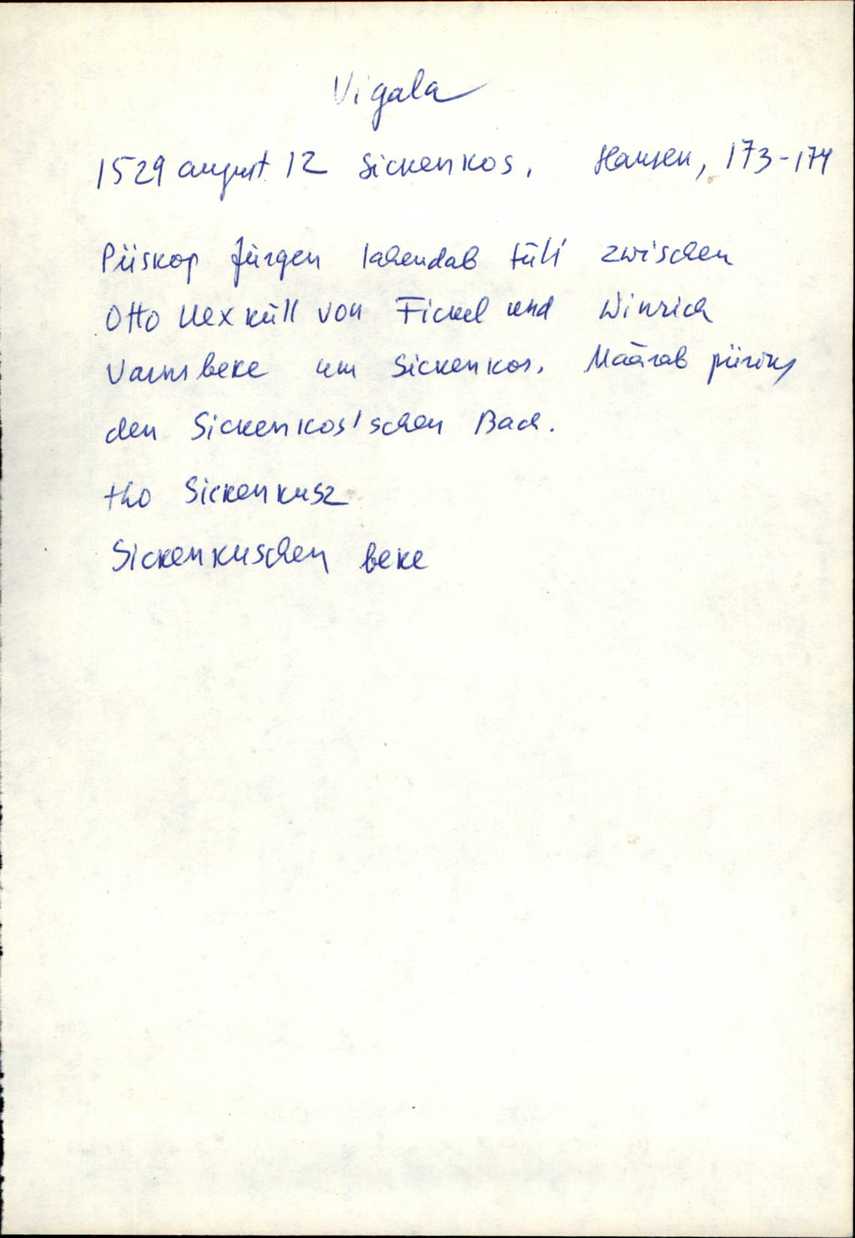 Vigala
1529 august 12 Sickenkos. Hansen, 173-174
Piiskop Jürgen lahendab tüli zwischen
Otto Uexküll von Fickel und Winrich
Varnsbeke um Sickenkos. Määrab piiriks
den Sickenkos'schen Bach.
tho Sickenkusz
Sickenkuschen beke